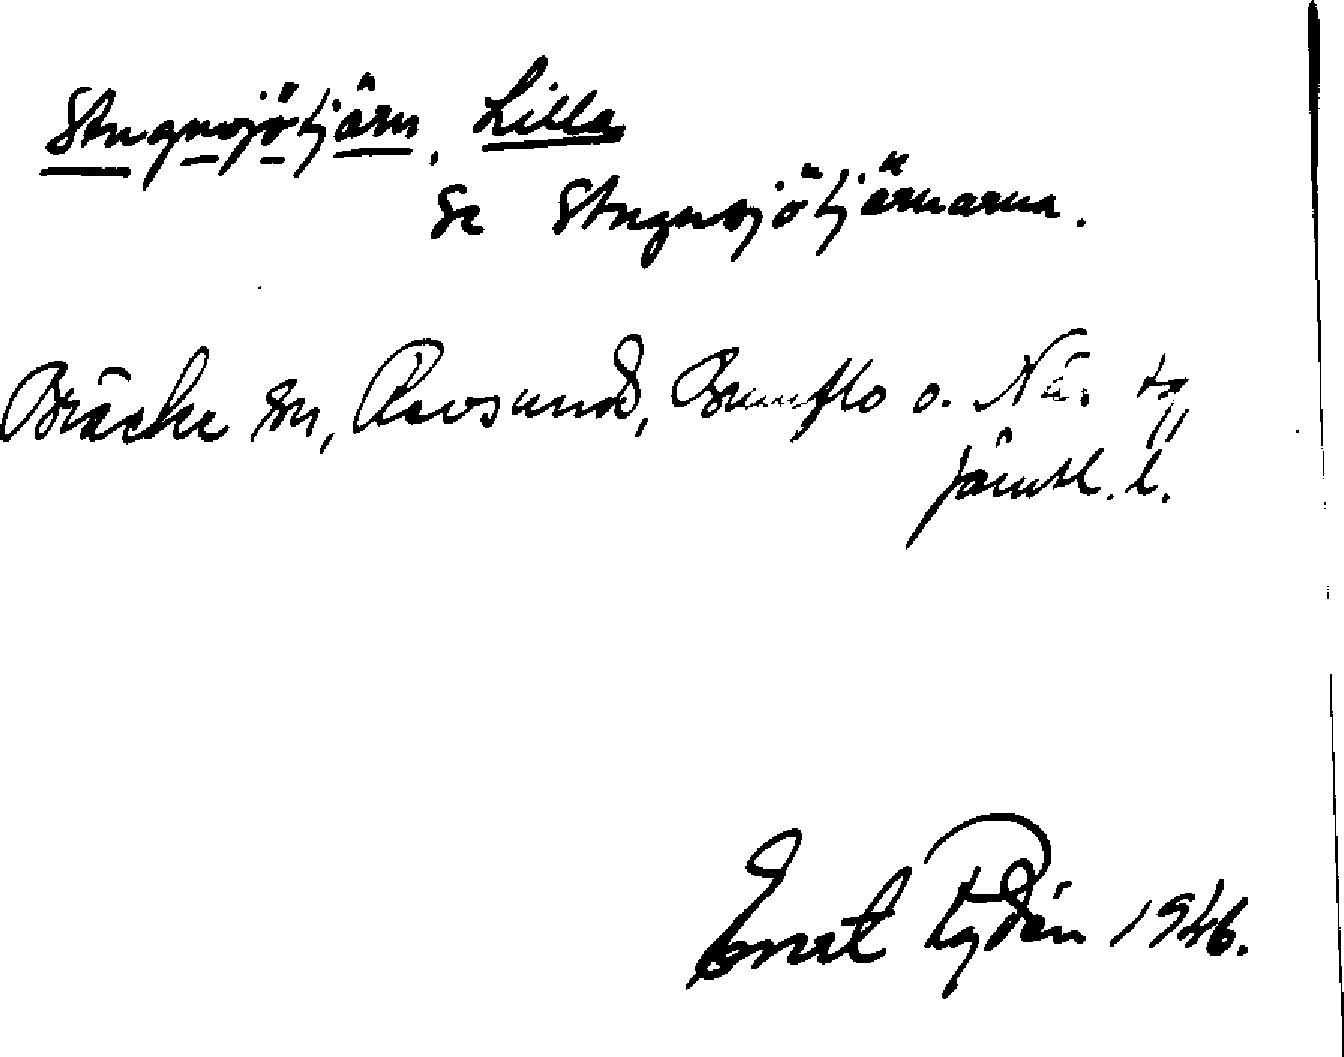 Stugusjötjärn, Lilla
Se Stugusjötjärnarna.
Bräcke sn, Revsund, Brunflo o. Näs tg
Jämtl. l.
Ernst Rydén 1946.